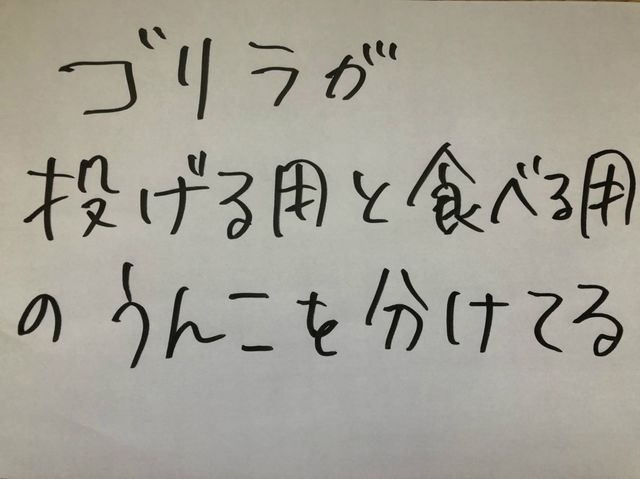 ゴリラが
投げる用と食べる用
のうんこを分けてる